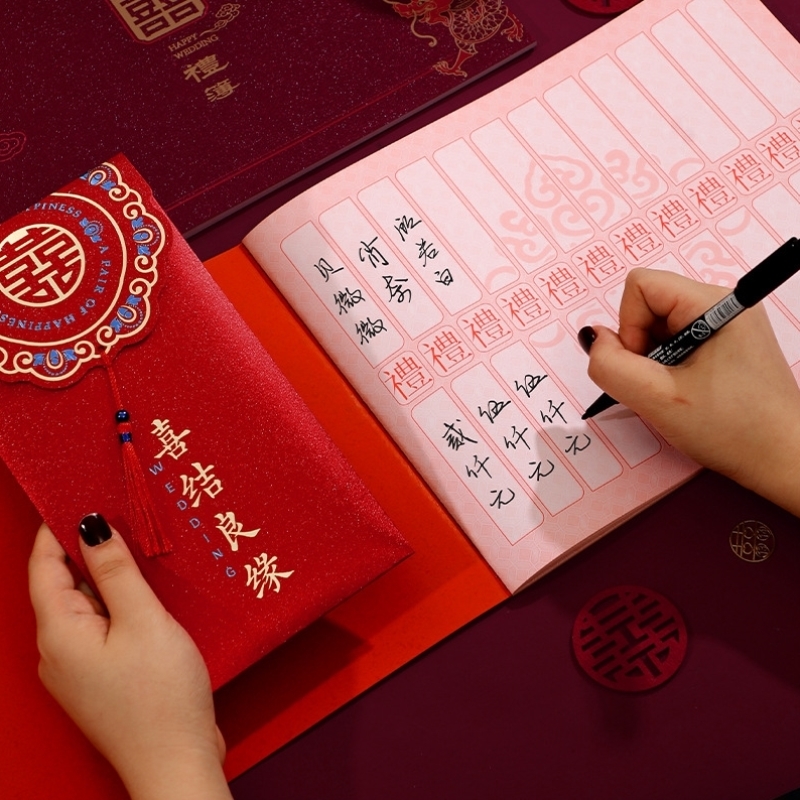 囍
HAPPY
WEDDING
禮
簿
HAPPINESS
A PAIR OF HAPPINESS
囍
喜结良缘
WEDDING
贝微微
肖奈
照若白
禮禮禮禮禮禮禮禮禮禮禮
贰仟元
伍仟元
伍仟元
囍